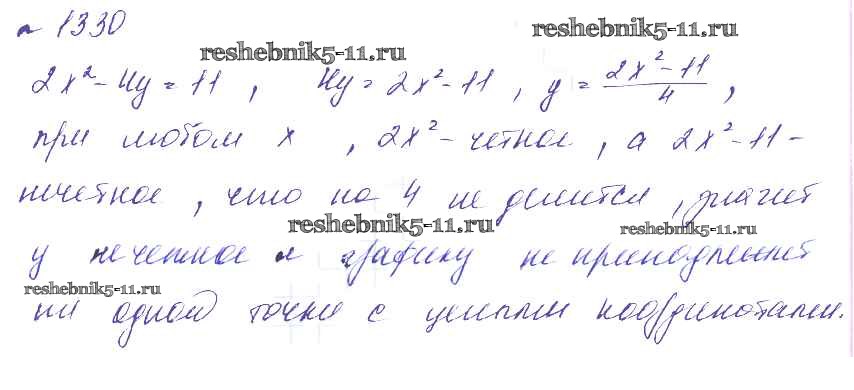 № 1330
reshebnik5-11.ru
reshebnik5-11.ru
2x² - 4y = 11, 4y = 2x² - 11, y = (2x² - 11)/4,
при любом x, 2x² - четное, а 2x² - 11 -
нечетное, что на 4 не делится, значит
reshebnik5-11.ru
reshebnik5-11.ru
у нечетное и графику не принадлежит
reshebnik5-11.ru
ни одной точки с целыми координатами.